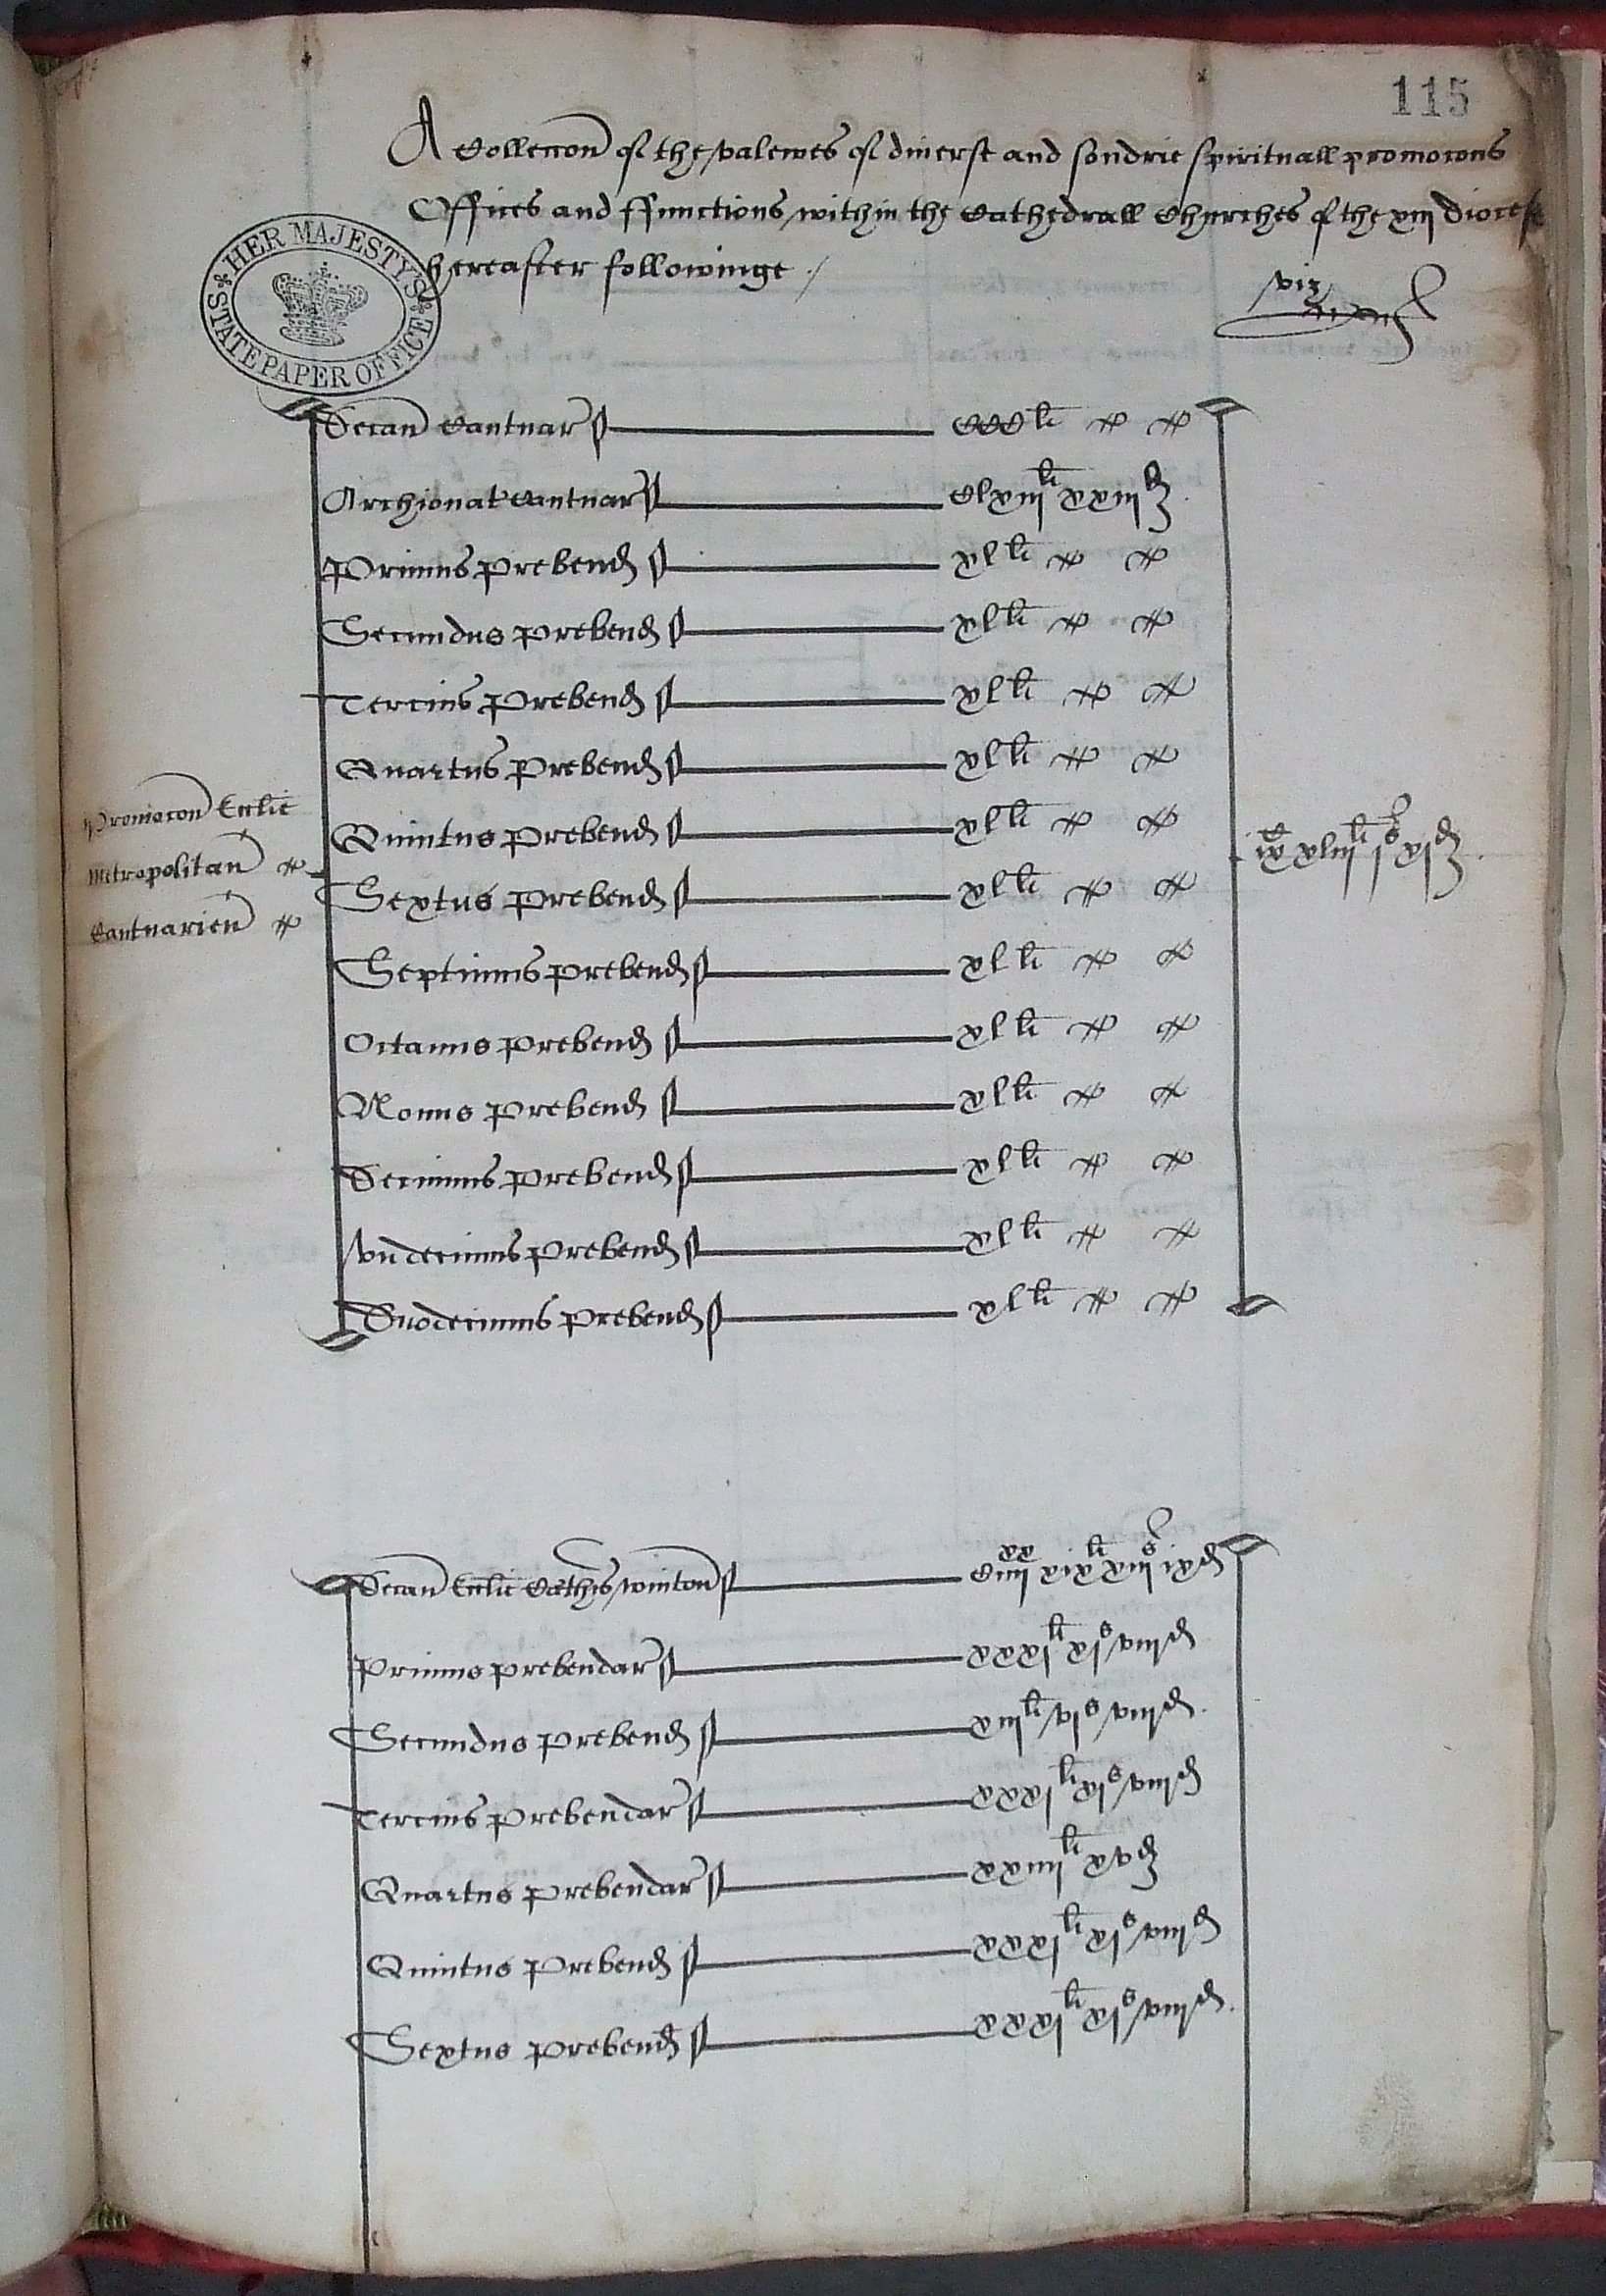 115
A Colleccon of the valewes of diuerse and sondrie spirituall promocons
Offices and ffunctions within the Cathedrall Churches of the xiij Dioces
hereafter followinge ./
viz
HER MAJESTY'S STATE PAPER OFFICE
Decan Cantuar CCC li
Archionat Cantuar Clxiij li xxiij d
Primus prebend xl li
Secundus prebend xl li
Tercius prebend xl li
Quartus prebend xl li
Quintus prebend xl li
Sextus prebend xl li
Septimus prebend xl li
Octauus prebend xl li
Nonus prebend xl li
Decimus prebend xl li
Vndecimus prebend xl li
Duodecimus prebend xl li
Promocon Ecclie
Mitropolitan
Cantuarien
ix C xliij li j s xj d
Decan Ecclie Cathis winton C iiij xx xix li xiij s ix d
Primus prebendar xxxj li xj s viij d
Secundus prebend xiij li vj s viij d
Tercius prebendar xxxj li xj s viij d
Quartus prebendar xxiiij li xv d
Quintus prebend xxxj li xj s viij d
Sextus prebend xxxj li xj s viij d